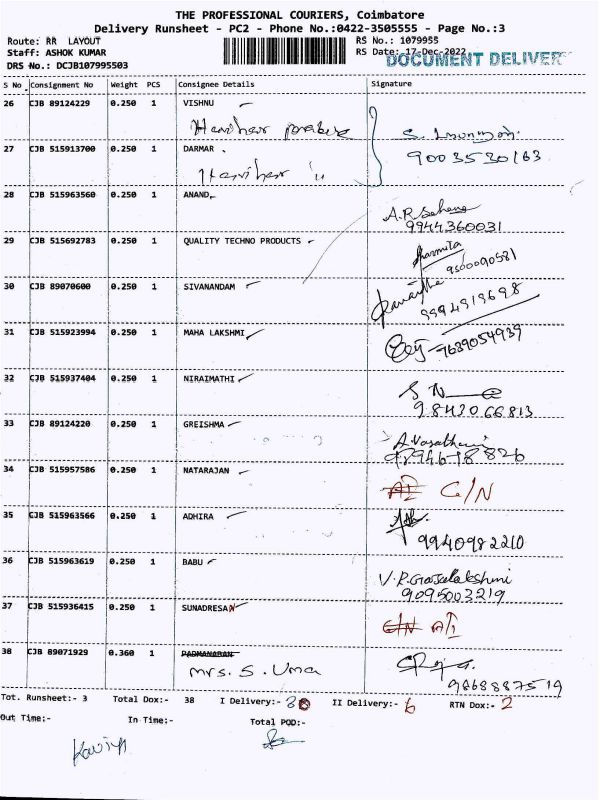 THE PROFESSIONAL COURIERS, Coimbatore
Delivery Runsheet - PC2 - Phone No.:0422-3505555 - Page No.:3
Route: RR LAYOUT
RS No.: 1079955
Staff: ASHOK KUMAR
RS Date: 17-Dec-2022
DOCUMENT DELIVERY
DRS No.: DCJB107995503
S No Consignment No Weight PCS Consignee Details Signature
26 CJB 89124229 0.250 1 VISHNU
Harihar prabu
27 CJB 515913700 0.250 1 DARMAR
9003530163
Harihar "
28 CJB 515963560 0.250 1 ANAND
9944360031
29 CJB 515692783 0.250 1 QUALITY TECHNO PRODUCTS
Sharmita
9500090581
30 CJB 89070600 0.250 1 SIVANANDAM
9994919698
31 CJB 515923994 0.250 1 MAHA LAKSHMI
7639054939
32 CJB 515937404 0.250 1 NIRAIMATHI
9842066813
33 CJB 89124220 0.250 1 GREISHMA
A.Vasathani
34 CJB 515957586 0.250 1 NATARAJAN
C/N
35 CJB 515963566 0.250 1 ADHIRA
9940982210
36 CJB 515963619 0.250 1 BABU
V.R.Gajalakshmi
9095003219
37 CJB 515936415 0.250 1 SUNADRESAN
C/N A/I
38 CJB 89071929 0.360 1 PADMANABAN
mrs. S. Uma
9868887519
Tot. Runsheet:- 3 Total Dox:- 38 I Delivery:- 30 II Delivery:- 6 RTN Dox:- 2
Out Time:- In Time:- Total POD:-